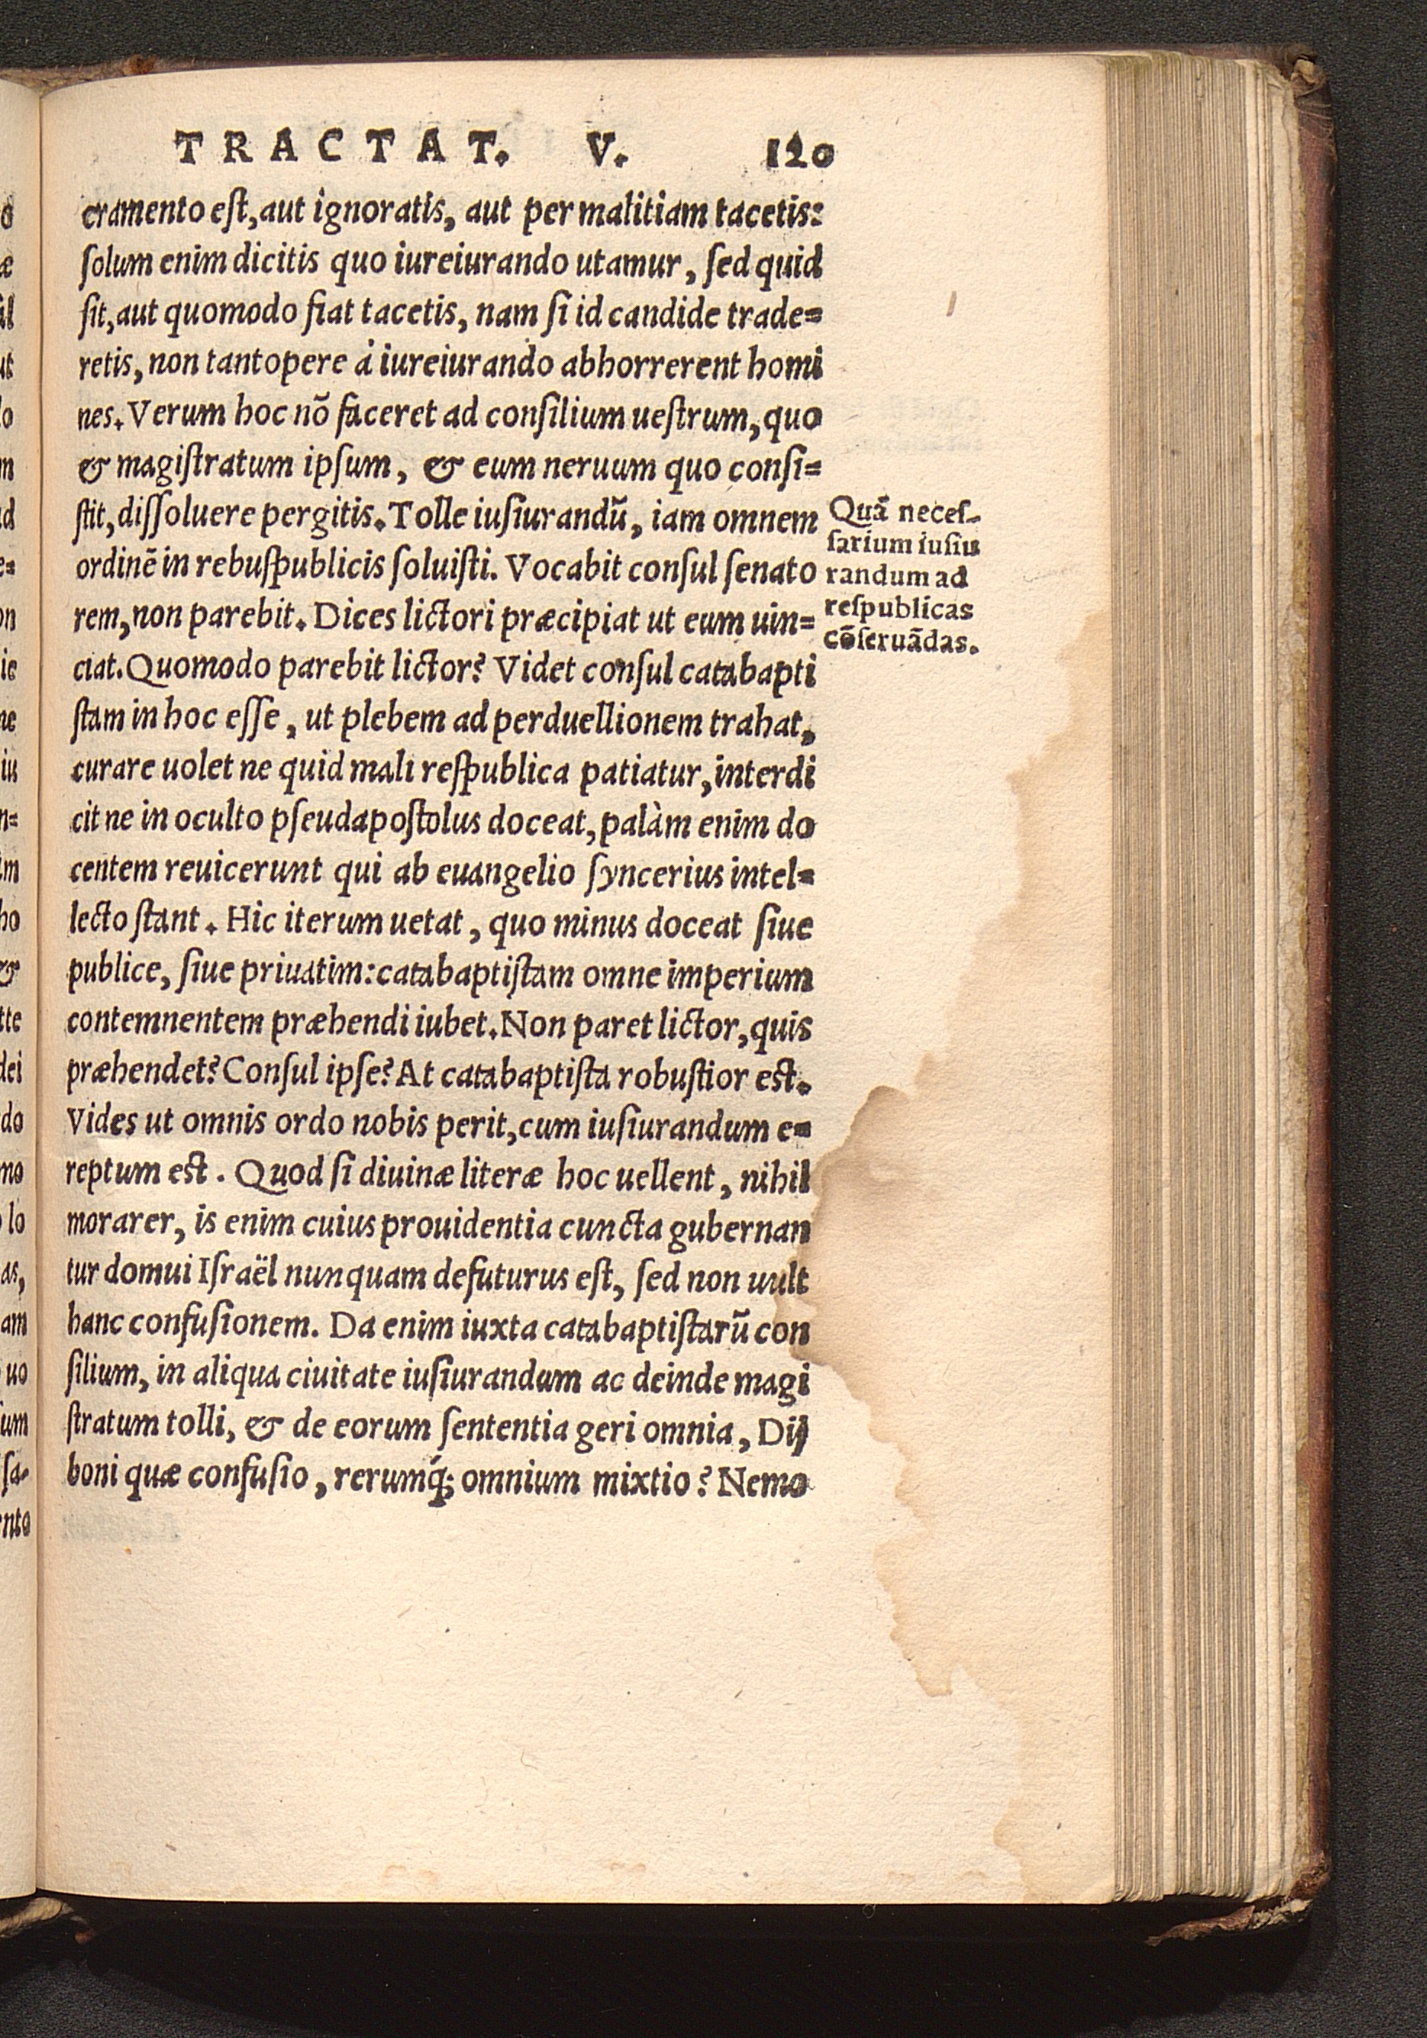 TRACTAT. V. 120
cramento est, aut ignoratis, aut per malitiam tacetis:
solum enim dicitis quo iureiurando utamur, sed quid
sit, aut quomodo fiat tacetis, nam si id candide trade=
retis, non tantopere à iureiurando abhorrerent homi
nes. Verum hoc nõ faceret ad consilium uestrum, quo
& magistratum ipsum, & eum neruum quo consi=
stit, dissoluere pergitis. Tolle iusiurandũ, iam omnem
ordinẽ in rebuspublicis soluisti. Vocabit consul senato
rem, non parebit. Dices lictori præcipiat ut eum uin=
ciat. Quomodo parebit lictor? Videt consul catabapti
stam in hoc esse, ut plebem ad perduellionem trahat,
curare uolet ne quid mali respublica patiatur, interdi
cit ne in oculto pseudapostolus doceat, palàm enim do
centem reuicerunt qui ab euangelio syncerius intel=
lecto stant. Hic iterum uetat, quo minus doceat siue
publice, siue priuatim: catabaptistam omne imperium
contemnentem præhendi iubet. Non paret lictor, quis
præhendet? Consul ipse? At catabaptista robustior est.
Vides ut omnis ordo nobis perit, cum iusiurandum e=
reptum est. Quod si diuinæ literæ hoc uellent, nihil
morarer, is enim cuius prouidentia cuncta gubernan
tur domui Israël nunquam defuturus est, sed non uult
hanc confusionem. Da enim iuxta catabaptistarũ con
silium, in aliqua ciuitate iusiurandum ac deinde magi
stratum tolli, & de eorum sententia geri omnia, Dij
boni quæ confusio, rerumq́; omnium mixtio? Nemo
Quã neces-
sarium iusiu
randum ad
respublicas
cõseruãdas.